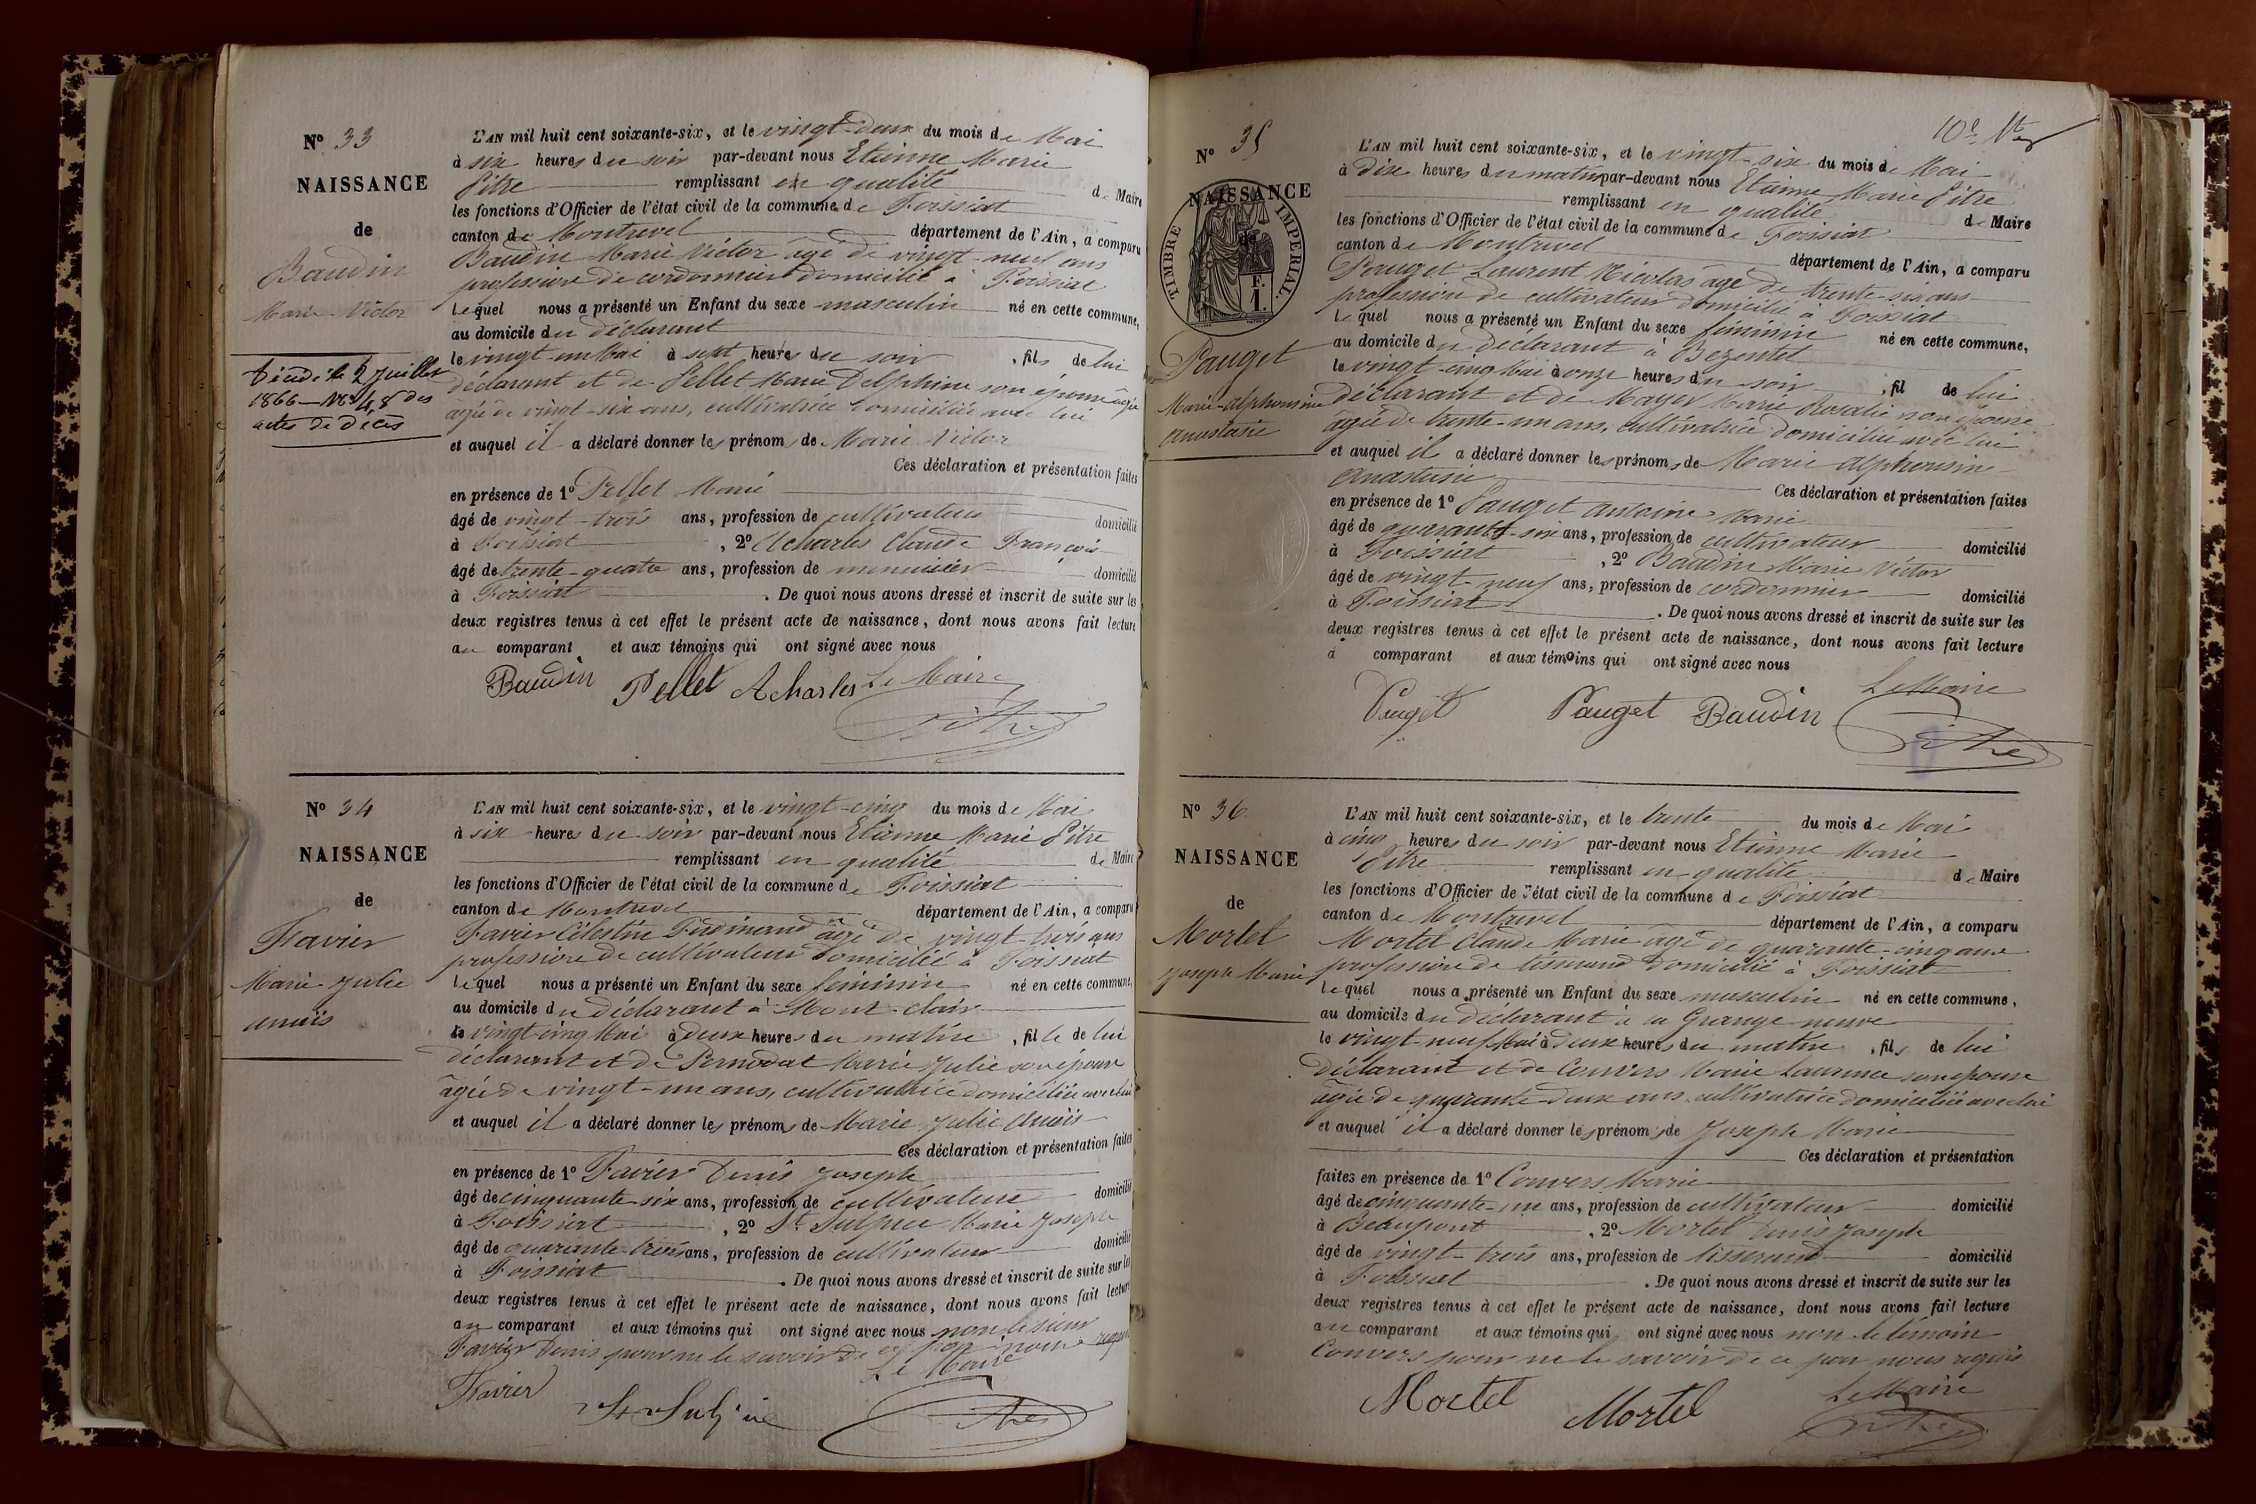 N° 33
NAISSANCE
de
Baudin
Marie Victor
Décédé le 2 Juillet
1866 — N° 48 des
actes de décès
L'AN mil huit cent soixante-six, et le vingt-deux du mois de Mai
à six heures du soir par-devant nous Etienne Marie
Pitre remplissant en qualité de Maire
les fonctions d'Officier de l'état civil de la commune de Foissiat
canton de Montrevel département de l'Ain, a comparu
Baudin Marie Victor âgé de vingt-neuf ans
profession de cordonnier domicilié à Foissiat
Lequel nous a présenté un Enfant du sexe masculin né en cette commune,
au domicile du déclarant
le vingt-un Mai à sept heures du soir, fils de lui
déclarant et de Pellet Marie Delphine son épouse
âgée de vingt-six ans, cultivatrice domiciliée avec lui
et auquel il a déclaré donner les prénoms de Marie Victor
Ces déclaration et présentation faites
en présence de 1° Pellet Marie
âgé de vingt-trois ans, profession de cultivateur domicilié
à Foissiat, 2° Acharles Claude François
âgé de trente-quatre ans, profession de menuisier domicilié
à Foissiat. De quoi nous avons dressé et inscrit de suite sur les
deux registres tenus à cet effet le présent acte de naissance, dont nous avons fait lecture
au comparant et aux témoins qui ont signé avec nous
Baudin Pellet Acharles Le Maire
Pitre
N° 34
NAISSANCE
de
Favier
Marie Julie
Anaïs
L'AN mil huit cent soixante-six, et le vingt-cinq du mois de Mai
à six heures du soir par-devant nous Etienne Marie Pitre
remplissant en qualité de Maire
les fonctions d'Officier de l'état civil de la commune de Foissiat
canton de Montrevel département de l'Ain, a comparu
Favier Célestin Ferdinand âgé de vingt-trois ans
profession de cultivateur domicilié à Foissiat
Lequel nous a présenté un Enfant du sexe féminin né en cette commune,
au domicile du déclarant à Mont-clair
le vingt cinq Mai à deux heures du matin, fille de lui
déclarant et de Pernodat Marie Julie son épouse
âgée de vingt-un ans, cultivatrice domiciliée avec lui
et auquel il a déclaré donner les prénoms de Marie Julie Anaïs
Ces déclaration et présentation faites
en présence de 1° Favier Denis Joseph
âgé de cinquante-six ans, profession de cultivateur domicilié
à Foissiat, 2° St Sulpice Marie Joseph
âgé de quarante-trois ans, profession de cultivateur domicilié
à Foissiat. De quoi nous avons dressé et inscrit de suite sur les
deux registres tenus à cet effet le présent acte de naissance, dont nous avons fait lecture
au comparant et aux témoins qui ont signé avec nous non le sieur
Favier Denis pour ne le savoir de ce par nous requis
Le Maire
Favier St Sulpice Pitre
10e
N° 35
NAISSANCE
de
TIMBRE IMPERIAL.
1 F.
Pauget
Marie-Alphonsine
Anastasie
L'AN mil huit cent soixante-six, et le vingt-six du mois de Mai
à dix heures du matin par-devant nous Etienne Marie Pitre
remplissant en qualité de Maire
les fonctions d'Officier de l'état civil de la commune de Foissiat
canton de Montrevel département de l'Ain, a comparu
Pauget Laurent Nicolas âgé de trente-six ans
profession de cultivateur domicilié à Foissiat
Lequel nous a présenté un Enfant du sexe féminin né en cette commune,
au domicile du déclarant à Bezentet
le vingt-cinq Mai à onze heures du soir, fil de lui
déclarant et de Mayer Marie Rosalie son épouse
âgée de trente-un ans, cultivatrice domiciliée avec lui
et auquel il a déclaré donner les prénoms de Marie Alphonsine
Anastasie Ces déclaration et présentation faites
en présence de 1° Pauget Antoine Marie
âgé de quarante-six ans, profession de cultivateur domicilié
à Foissiat, 2° Baudin Marie Victor
âgé de vingt-neuf ans, profession de cordonnier domicilié
à Foissiat. De quoi nous avons dressé et inscrit de suite sur les
deux registres tenus à cet effet le présent acte de naissance, dont nous avons fait lecture
à comparant et aux témoins qui ont signé avec nous
Le Maire
Pauget Pauget Baudin Pitre
N° 36
NAISSANCE
de
Mortel
Joseph Marie
L'AN mil huit cent soixante-six, et le trente du mois de Mai
à cinq heures du soir par-devant nous Etienne Marie
Pitre remplissant en qualité de Maire
les fonctions d'Officier de l'état civil de la commune de Foissiat
canton de Montrevel département de l'Ain, a comparu
Mortel Claude Marie âgé de quarante-cinq ans
profession de tisserand domicilié à Foissiat
Lequel nous a présenté un Enfant du sexe masculin né en cette commune,
au domicile du déclarant à la Grange neuve
le vingt-neuf Mai à deux heures du matin, fils de lui
déclarant et de Convers Marie Laurence son épouse
âgée de quarante-deux ans cultivatrice domiciliée avec lui
et auquel il a déclaré donner les prénoms de Joseph Marie
Ces déclaration et présentation
faites en présence de 1° Convers Marie
âgé de cinquante-un ans, profession de cultivateur domicilié
à Beaupont, 2° Mortel Denis Joseph
âgé de vingt-trois ans, profession de tisserand domicilié
à Foissiat. De quoi nous avons dressé et inscrit de suite sur les
deux registres tenus à cet effet le présent acte de naissance, dont nous avons fait lecture
au comparant et aux témoins qui ont signé avec nous non le témoin
Convers pour ne le savoir de ce par nous requis
Le Maire
Mortel Mortel Pitre